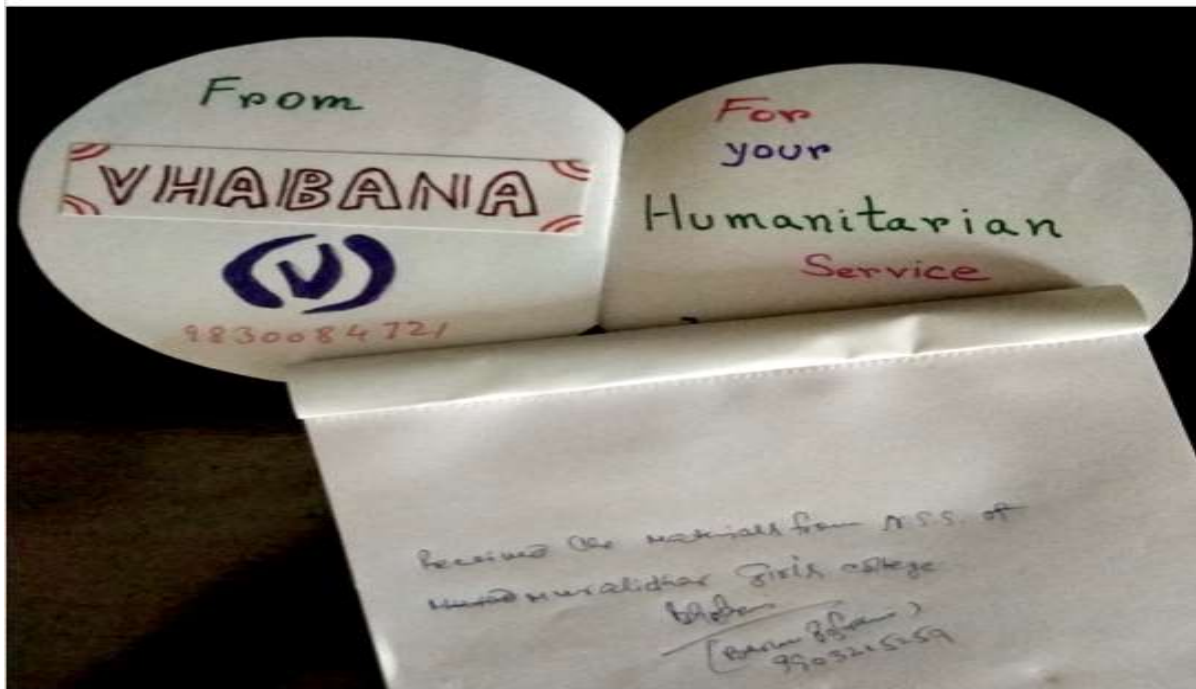 From
VHABANA
V
9830084721
For
your
Humanitarian
Service
Received the materials from N.S.S. of
Muralidhar Girls college
9903215259